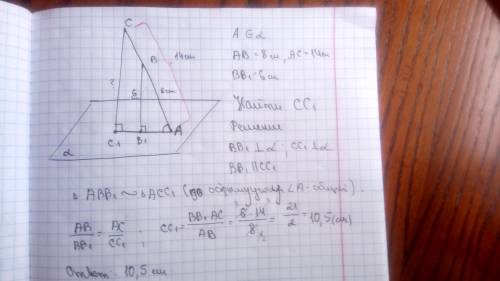 C
B
14см
?
6
8см
C₁ B₁ A
α
A ∈ α
AB = 8см, AC = 14см
BB₁ = 6см
Найти CC₁
Решение
BB₁ ⊥ α ; CC₁ ⊥ α
BB₁ || CC₁
△ ABB₁ ~ △ ACC₁ ( острому углу ∠A - общий).
AB/BB₁ = AC/CC₁ ; CC₁ = BB₁·AC/AB = 6·14/8 = 21/2 = 10,5 (см)
Ответ: 10,5 см